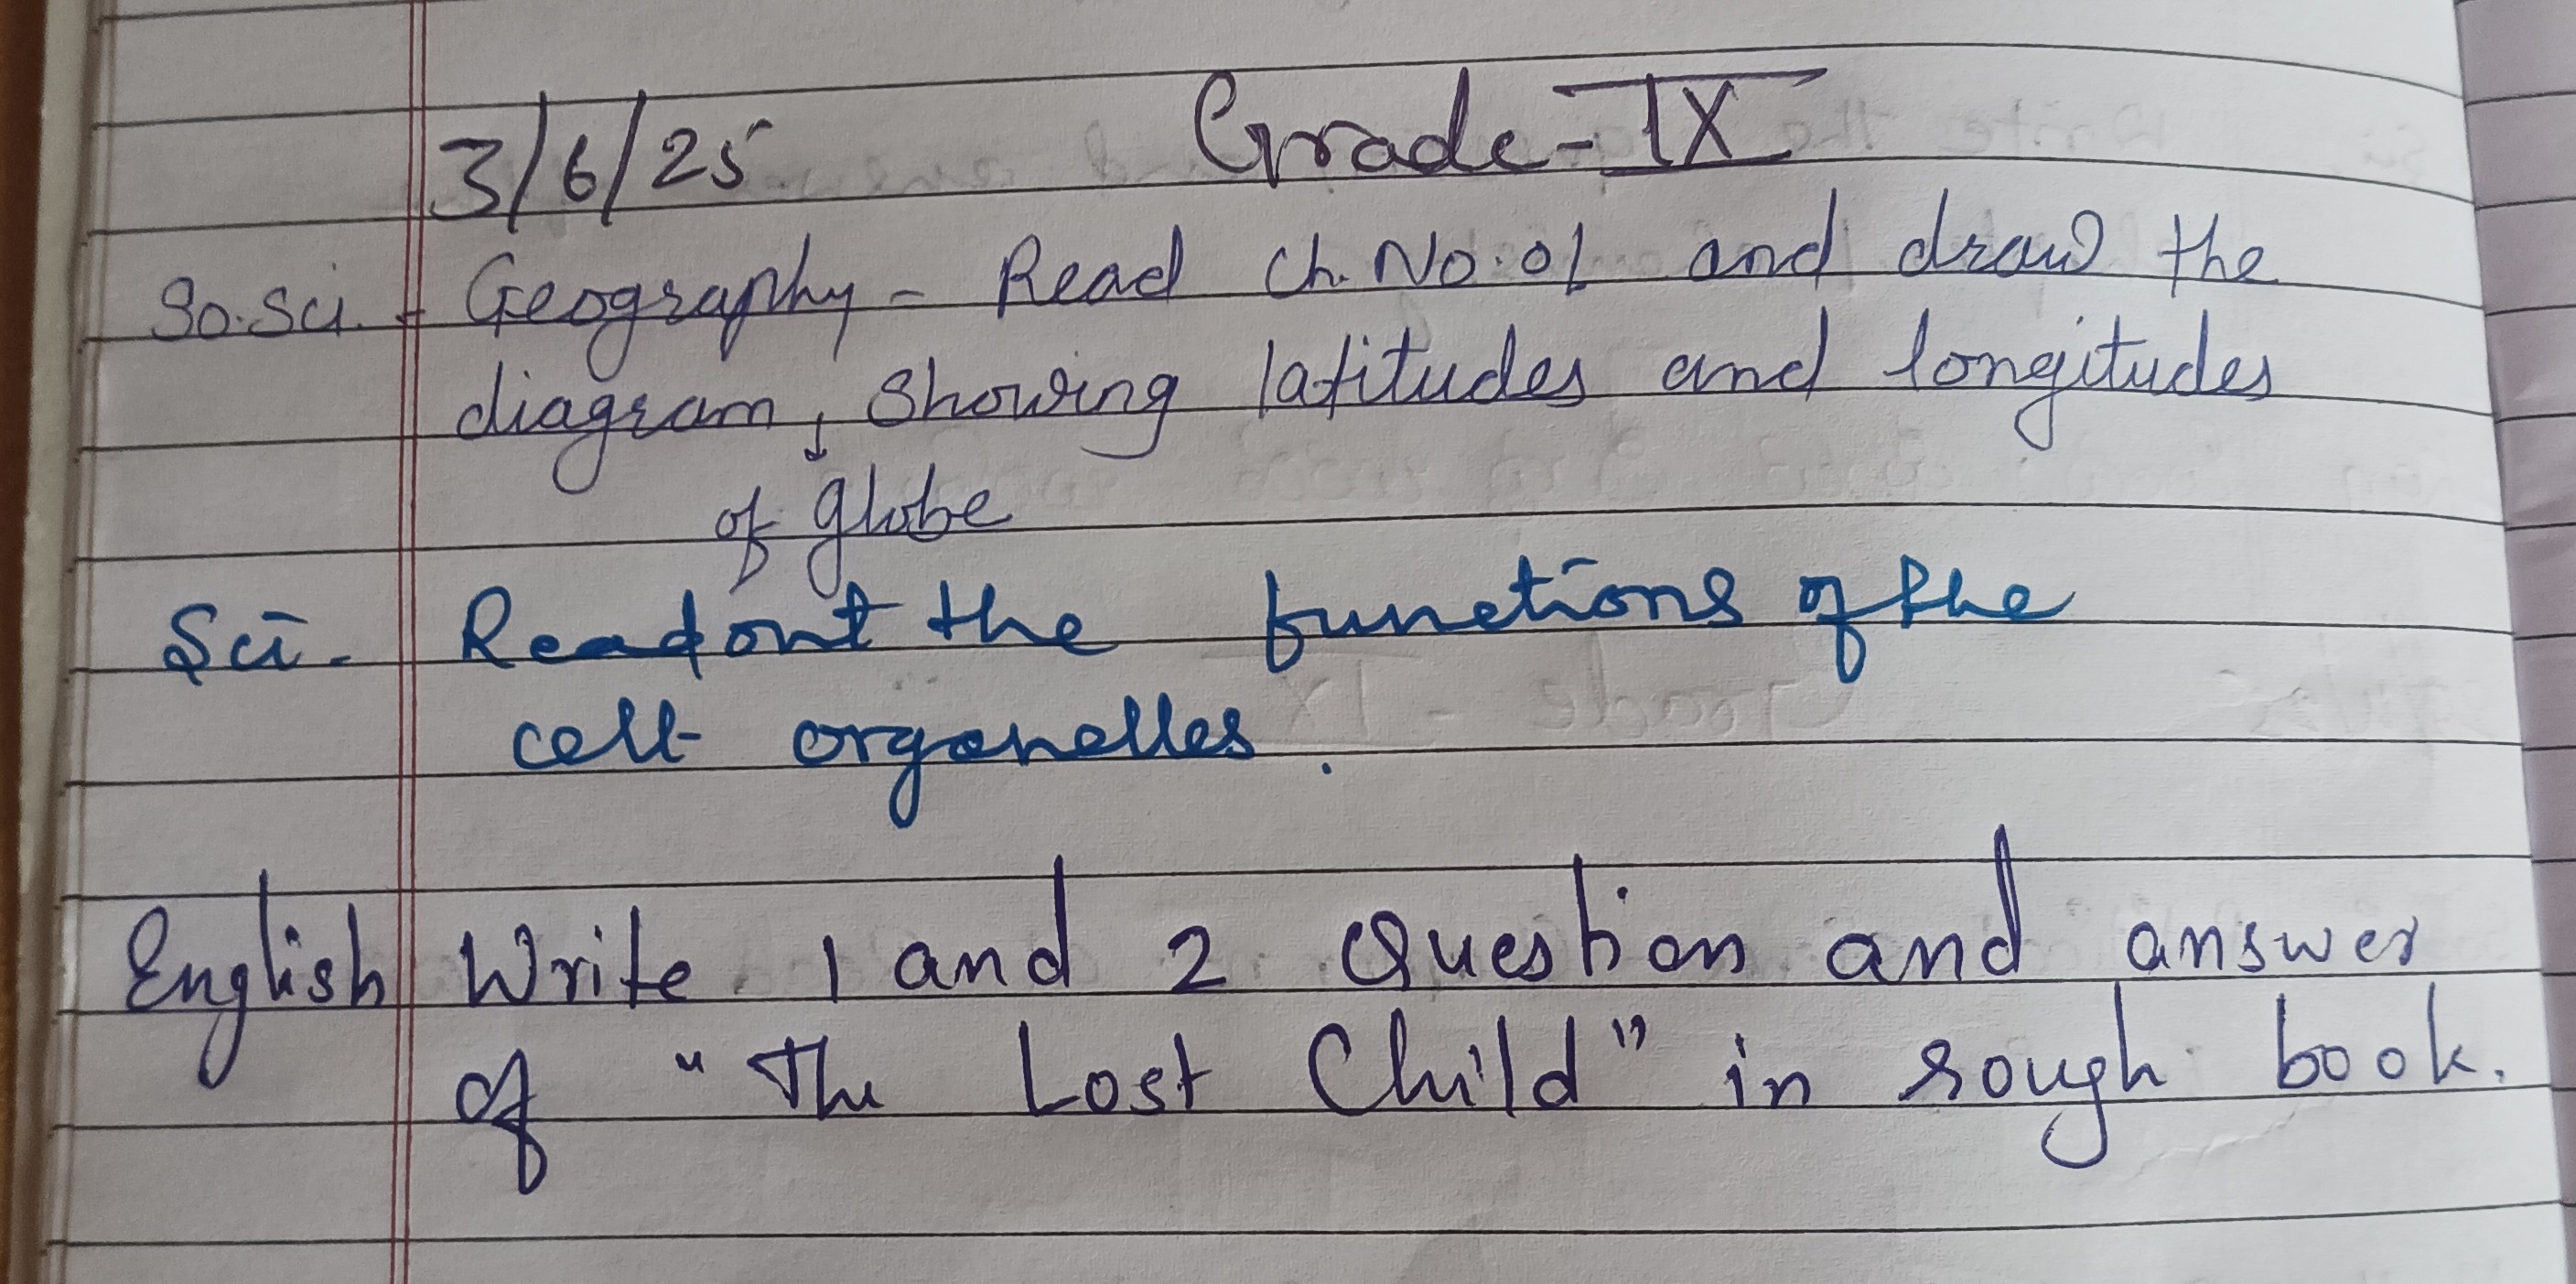 3/6/25 Grade-IX
So.Sci. - Geography - Read Ch. No. 01 and draw the
diagram, showing latitudes and longitudes
of globe
Sci. Readout the functions of the
cell organelles.
English Write 1 and 2 Question and answer
of "The Lost Child" in rough book.